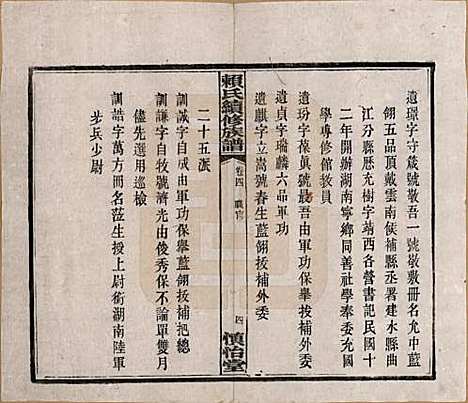 遺璟字守箴號敬吾一號敬敷冊名允中藍
翎五品頂戴雲南候補縣丞署建水縣曲
江分縣歷充樹字靖西各營書記民國十
二年開辦湖南寧鄉同善社學奉委充國
學專修館教員
遺玢字葆眞號最吾由軍功保舉拔補外委
遺貞字瑞麟六品軍功
遺麒字立嵩號春生藍翎拔補外委
賴氏續修族譜
卷四 職官
四
慎怡堂
二十五派
訓誠字自成由軍功保舉藍翎拔補把總
訓謙字自牧號濟光由俊秀保不論單雙月
儘先選用巡檢
訓語字萬方冊名蒞生授上尉銜湖南陸軍
步兵少尉